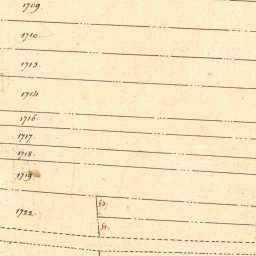 1709
1710.
1713.
1714
1716.
1717
1718.
1719
1722.